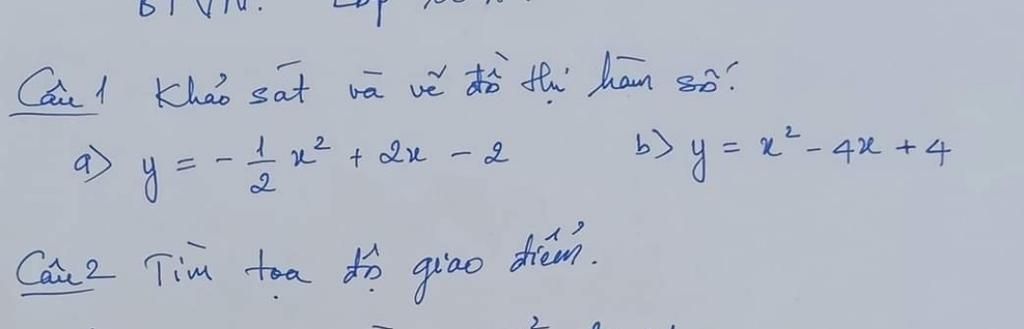 BTVN. Lớp
Câu 1 Khảo sát và vẽ đồ thị hàm số:
a) y = -1/2 x² + 2x - 2 b) y = x² - 4x + 4
Câu 2 Tìm tọa độ giao điểm.